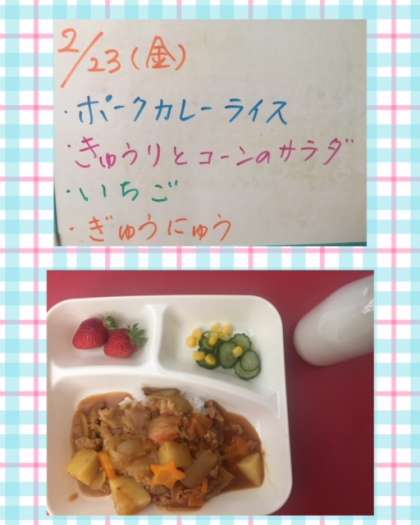 2/23(金)
・ポークカレーライス
・きゅうりとコーンのサラダ
・いちご
・ぎゅうにゅう